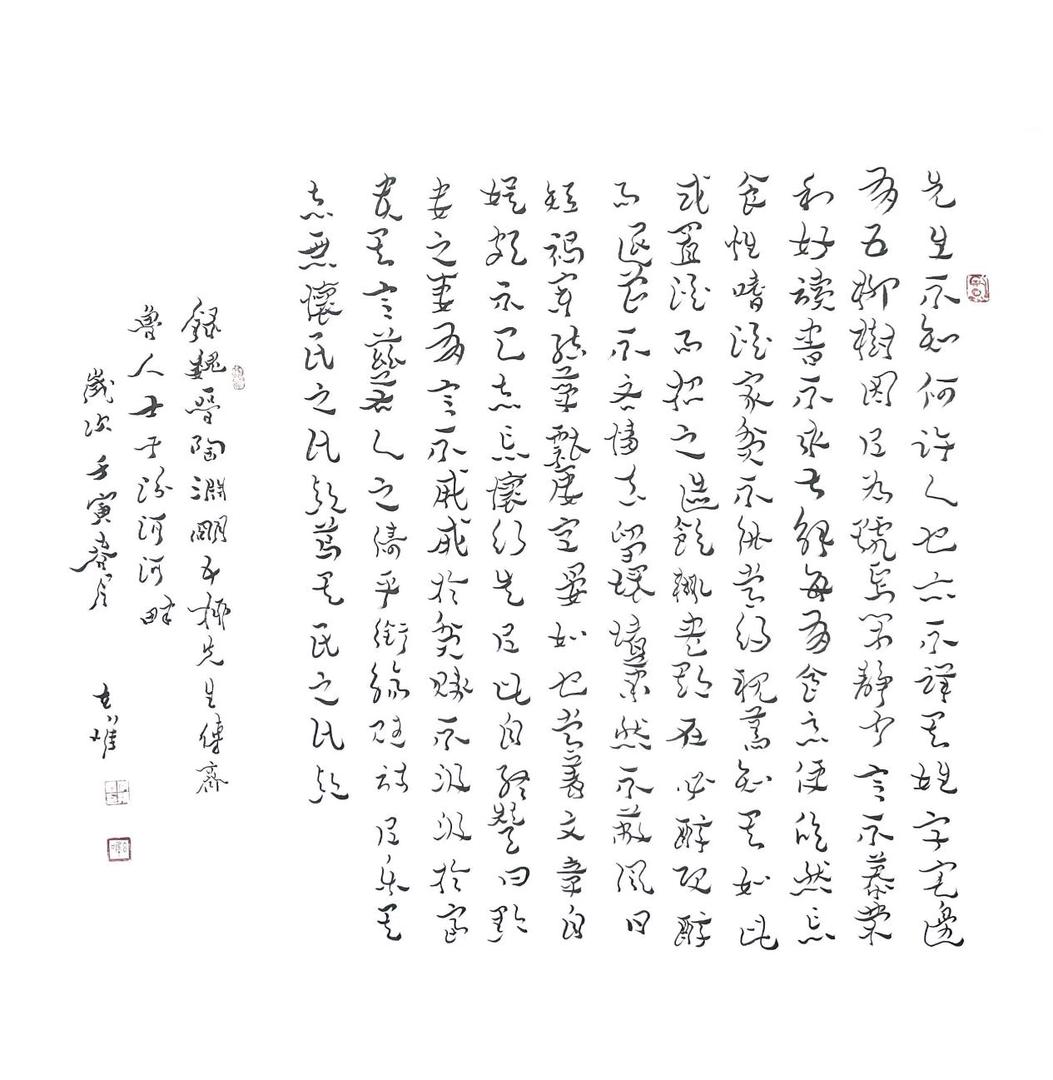 先生不知何許人也亦不詳其姓字宅邊
有五柳樹因以為號焉閑靜少言不慕榮
利好讀書不求甚解每有會意便欣然忘
食性嗜酒家貧不能常得親舊知其如此
或置酒而招之造飲輒盡期在必醉既醉
而退曾不吝情去留環堵蕭然不蔽風日
短褐穿結簞瓢屢空晏如也常著文章自
娛頗示己志忘懷得失以此自終贊曰黔
婁之妻有言不戚戚於貧賤不汲汲於富
貴其言茲若人之儔乎銜觴賦詩以樂其
志無懷氏之民歟葛天氏之民歟
錄魏晉陶淵明五柳先生傳齋
魯人士于汾河河畔
歲次壬寅春月